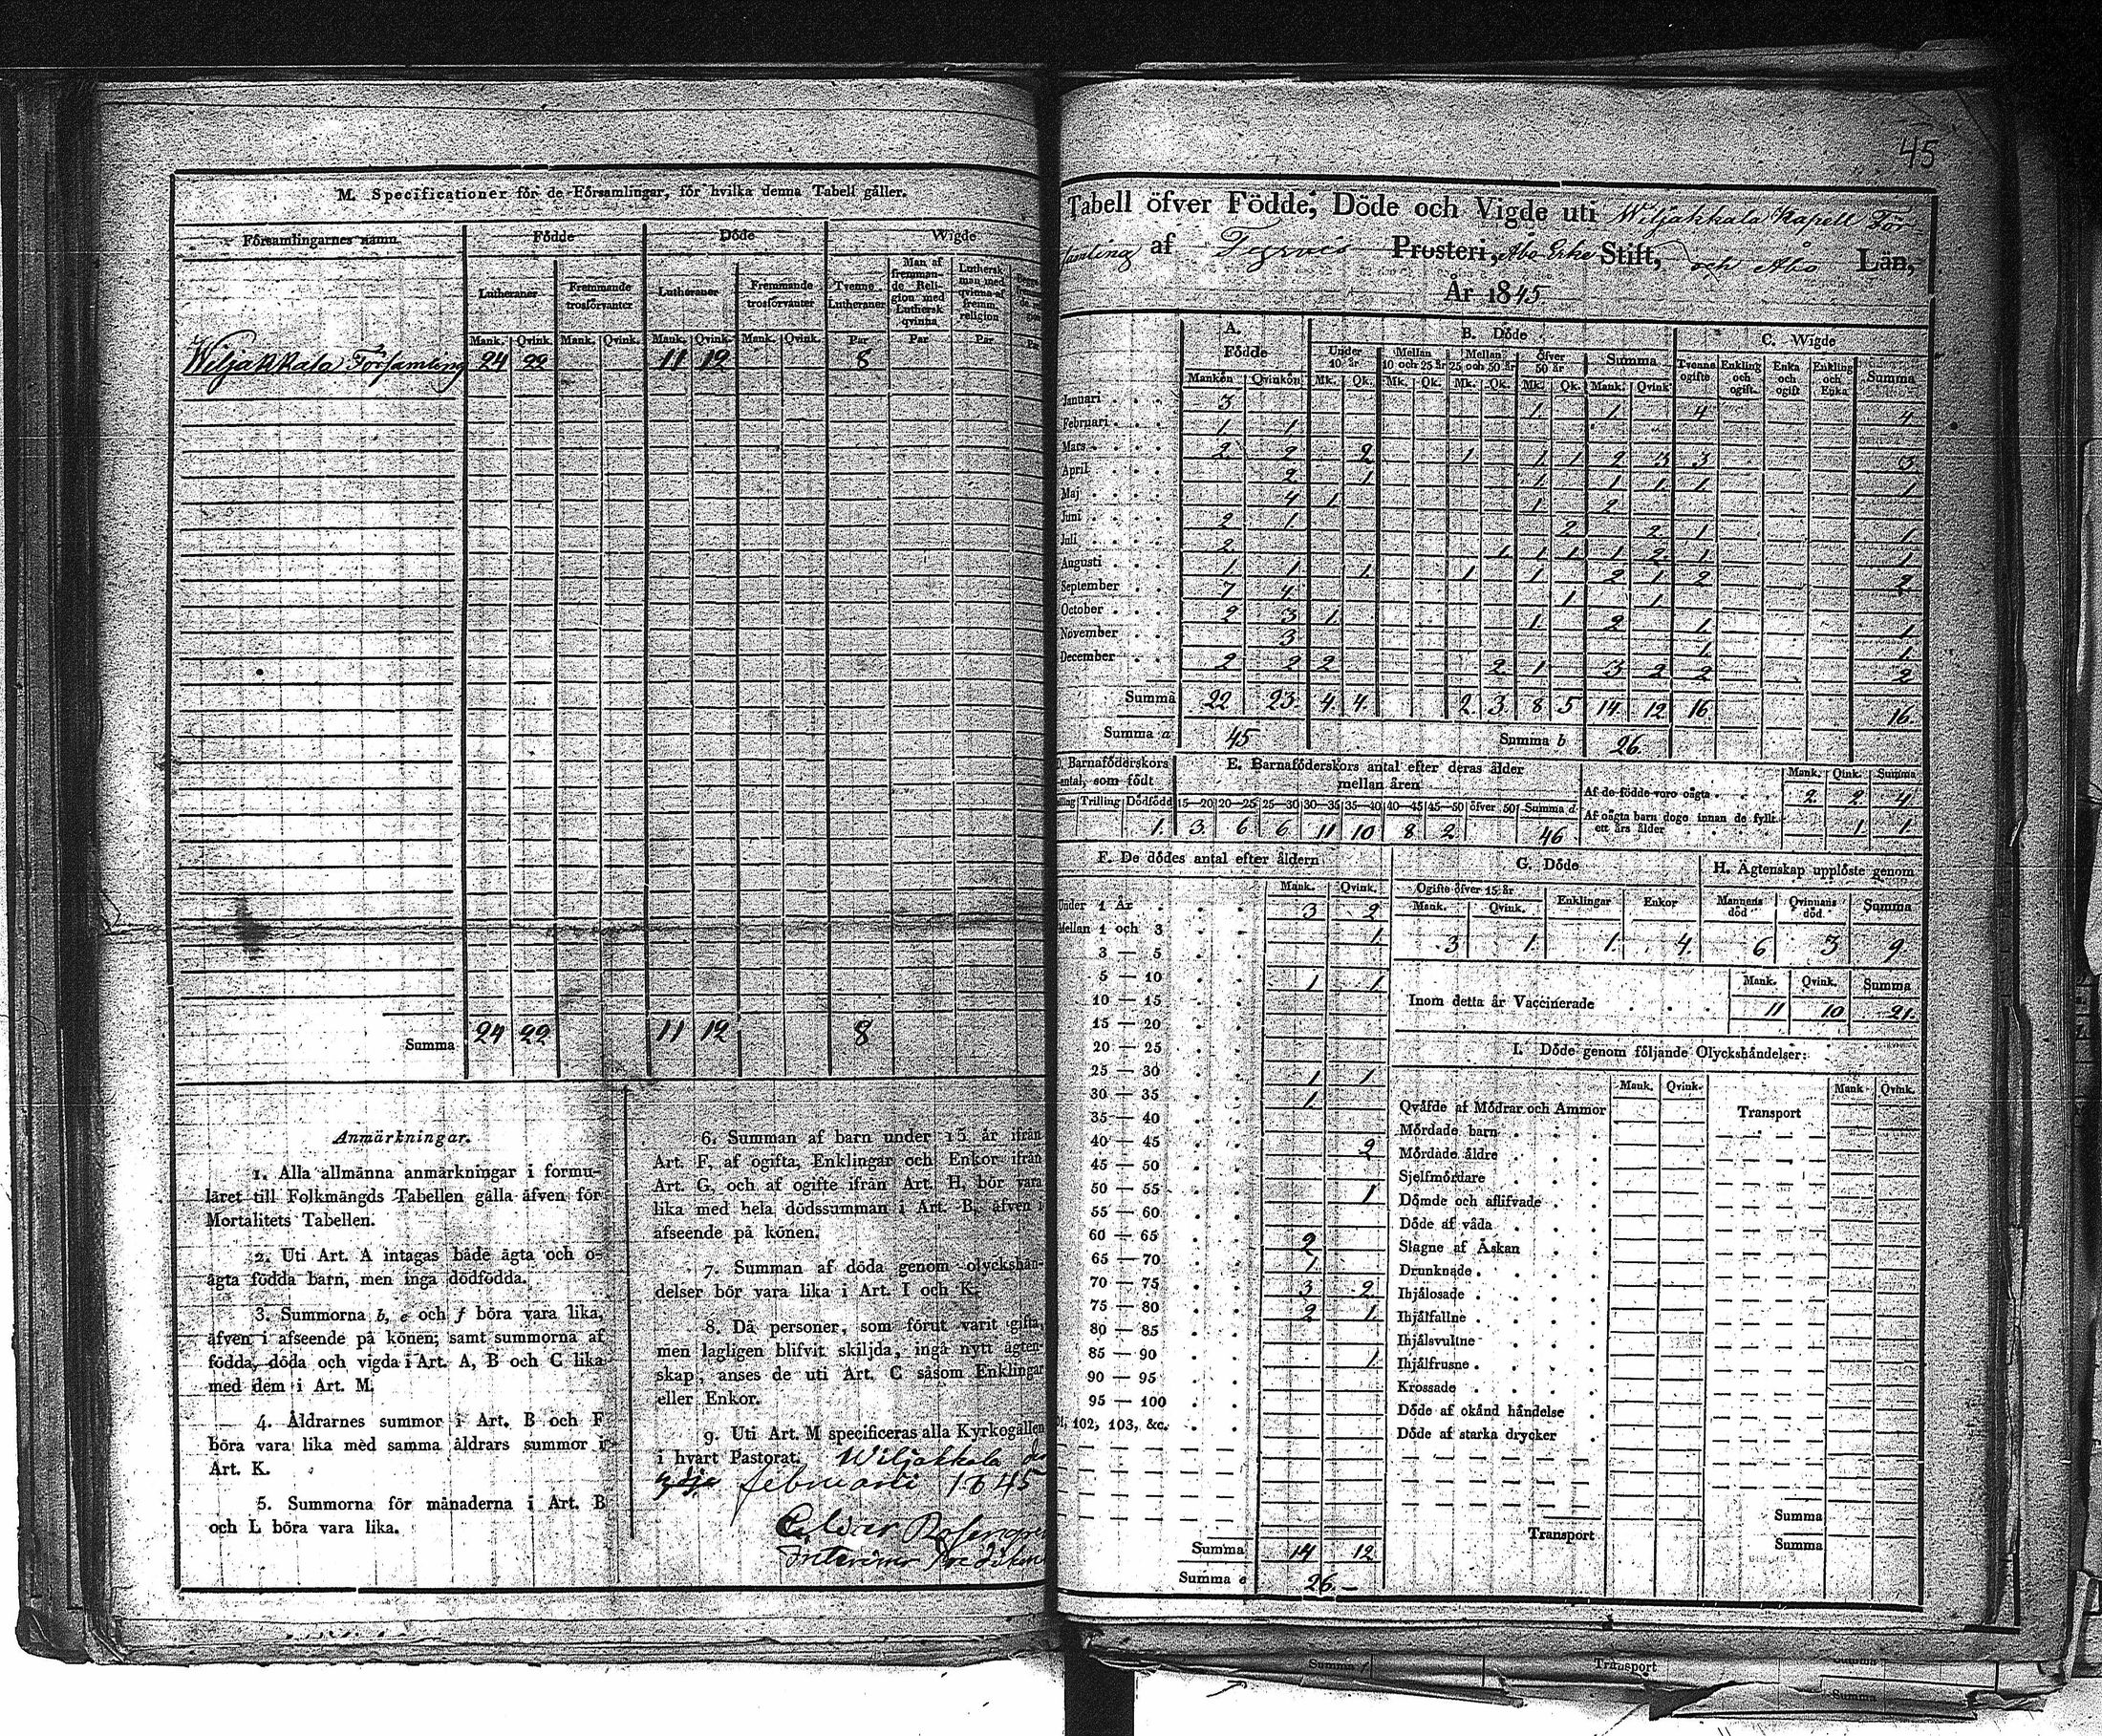 M. Specificationer för de Församlingar, för hvilka denna Tabell gäller.
Församlingarnes namn. Födde Döde Wigde
Lutheraner Fremmande trosförvanter Lutheraner Fremmande trosförvanter Tvenne Lutheraner Man af fremmande Religion med Luthersk qvinna Luthersk man med qvinna af fremm. religion
Mank. Qvink. Mank. Qvink. Mank. Qvink. Mank. Qvink. Par Par Par
Wiljakkala Församling 24 22 11 12 8
Summa 24 22 11 12 8
Anmärkningar.
1. Alla allmänna anmärkningar i formu-
läret till Folkmängds Tabellen gälla äfven för
Mortalitets Tabellen.
2. Uti Art. A intagas både ägta och o-
ägta födda barn, men inga dödfödda.
3. Summorna b, e och f böra vara lika,
äfven i afseende på könen; samt summorna af
födda, döda och vigda i Art. A, B och C lika
med dem i Art. M.
4. Åldrarnes summor i Art. B och F
böra vara lika med samma åldrars summor i
Art. K.
5. Summorna för månaderna i Art. B
och L böra vara lika.
6. Summan af barn under 15 år ifrån
Art. F, af ogifta, Enklingar och Enkor ifrån
Art. G, och af ogifte ifrån Art. H, bör vara
lika med hela dödssumman i Art. B, äfven i
afseende på könen.
7. Summan af döda genom olyckshän-
delser bör vara lika i Art. I och K.
8. Då personer, som förut varit gifta,
men lagligen blifvit skiljda, ingå nytt ägten-
skap, anses de uti Art. C såsom Enklingar
eller Enkor.
9. Uti Art. M specificeras alla Kyrkogällen
i hvart Pastorat. Wiljakkala
februarii 1845
45
Tabell öfver Födde, Döde och Vigde uti Wiljakkala Kapell För-
samling af Prosteri, Åbo Erke Stift, och Åbo Län,
År 1845
A. Födde B. Döde C. Wigde
Under 10 år Mellan 10 och 25 år Mellan 25 och 50 år öfver 50 år Summa Tvenne ogifte Enkling och ogift Enka och ogift Enkling och Enka Summa
Mankön Qvinkön Mk. Qk. Mk. Qk. Mk. Qk. Mk. Qk. Mank. Qvink.
Januari 3 1 1 4 4
Februari 1 1
Mars 2 2 2 1 1 1 2 3 3 3
April 2 1 1 1 1 1 1
Maj 4 1 1 2
Juni 2 1 2 2 1 1
Juli 2 1 1 1 1 2 1 1
Augusti 1 1 1 1 1 2 1 2 2
September 7 4 1 1
October 2 3 1 1 2 1 1
November 3 1 1
December 2 2 2 2 1 3 2 2 2
Summa 22 23 4 4 2 3 8 5 14 12 16 16
Summa a 45 Summa b 26
Barnaföderskors antal, som födt E. Barnaföderskors antal efter deras ålder
mellan åren
Trilling Dödfödd 15—20 20—25 25—30 30—35 35—40 40—45 45—50 öfver 50 Summa d
1 3 6 6 11 10 8 2 46
Mank. Qink. Summa
Af de födde voro oägta 2 2 4
Af oägta barn dogo innan de fyllt
ett års ålder 1 1
F. De dödes antal efter åldern
Mank. Qvink.
Under 1 År 3 2
Mellan 1 och 3 1
3 — 5
5 — 10 1 1
10 — 15
15 — 20
20 — 25
25 — 30 1 1
30 — 35 1
35 — 40
40 — 45 2
45 — 50
50 — 55 1
55 — 60
60 — 65 2
65 — 70 1
70 — 75 3 2
75 — 80 2 1
80 — 85
85 — 90 1
90 — 95
95 — 100
102, 103, &c.
Summa 14 12
Summa e 26
G. Döde
Ogifte öfver 15 år Enklingar Enkor
Mank. Qvink.
3 1 1 4
H. Ägtenskap upplöste genom
Mannens död Qvinnans död Summa
6 3 9
Mank. Qvink. Summa
Inom detta år Vaccinerade 11 10 21
I. Döde genom följande Olyckshändelser:
Mank. Qvink. Mank. Qvink.
Qväfde af Mödrar och Ammor
Mördade barn
Mördade äldre
Sjelfmördare
Dömde och aflifvade
Döde af våda
Slagne af Åskan
Drunknade
Ihjälosade
Ihjälfallne
Ihjälsvultne
Ihjälfrusne
Krossade
Döde af okänd händelse
Döde af starka drycker
Transport
Transport
Summa
Summa
Summa f Transport Summa
Summa